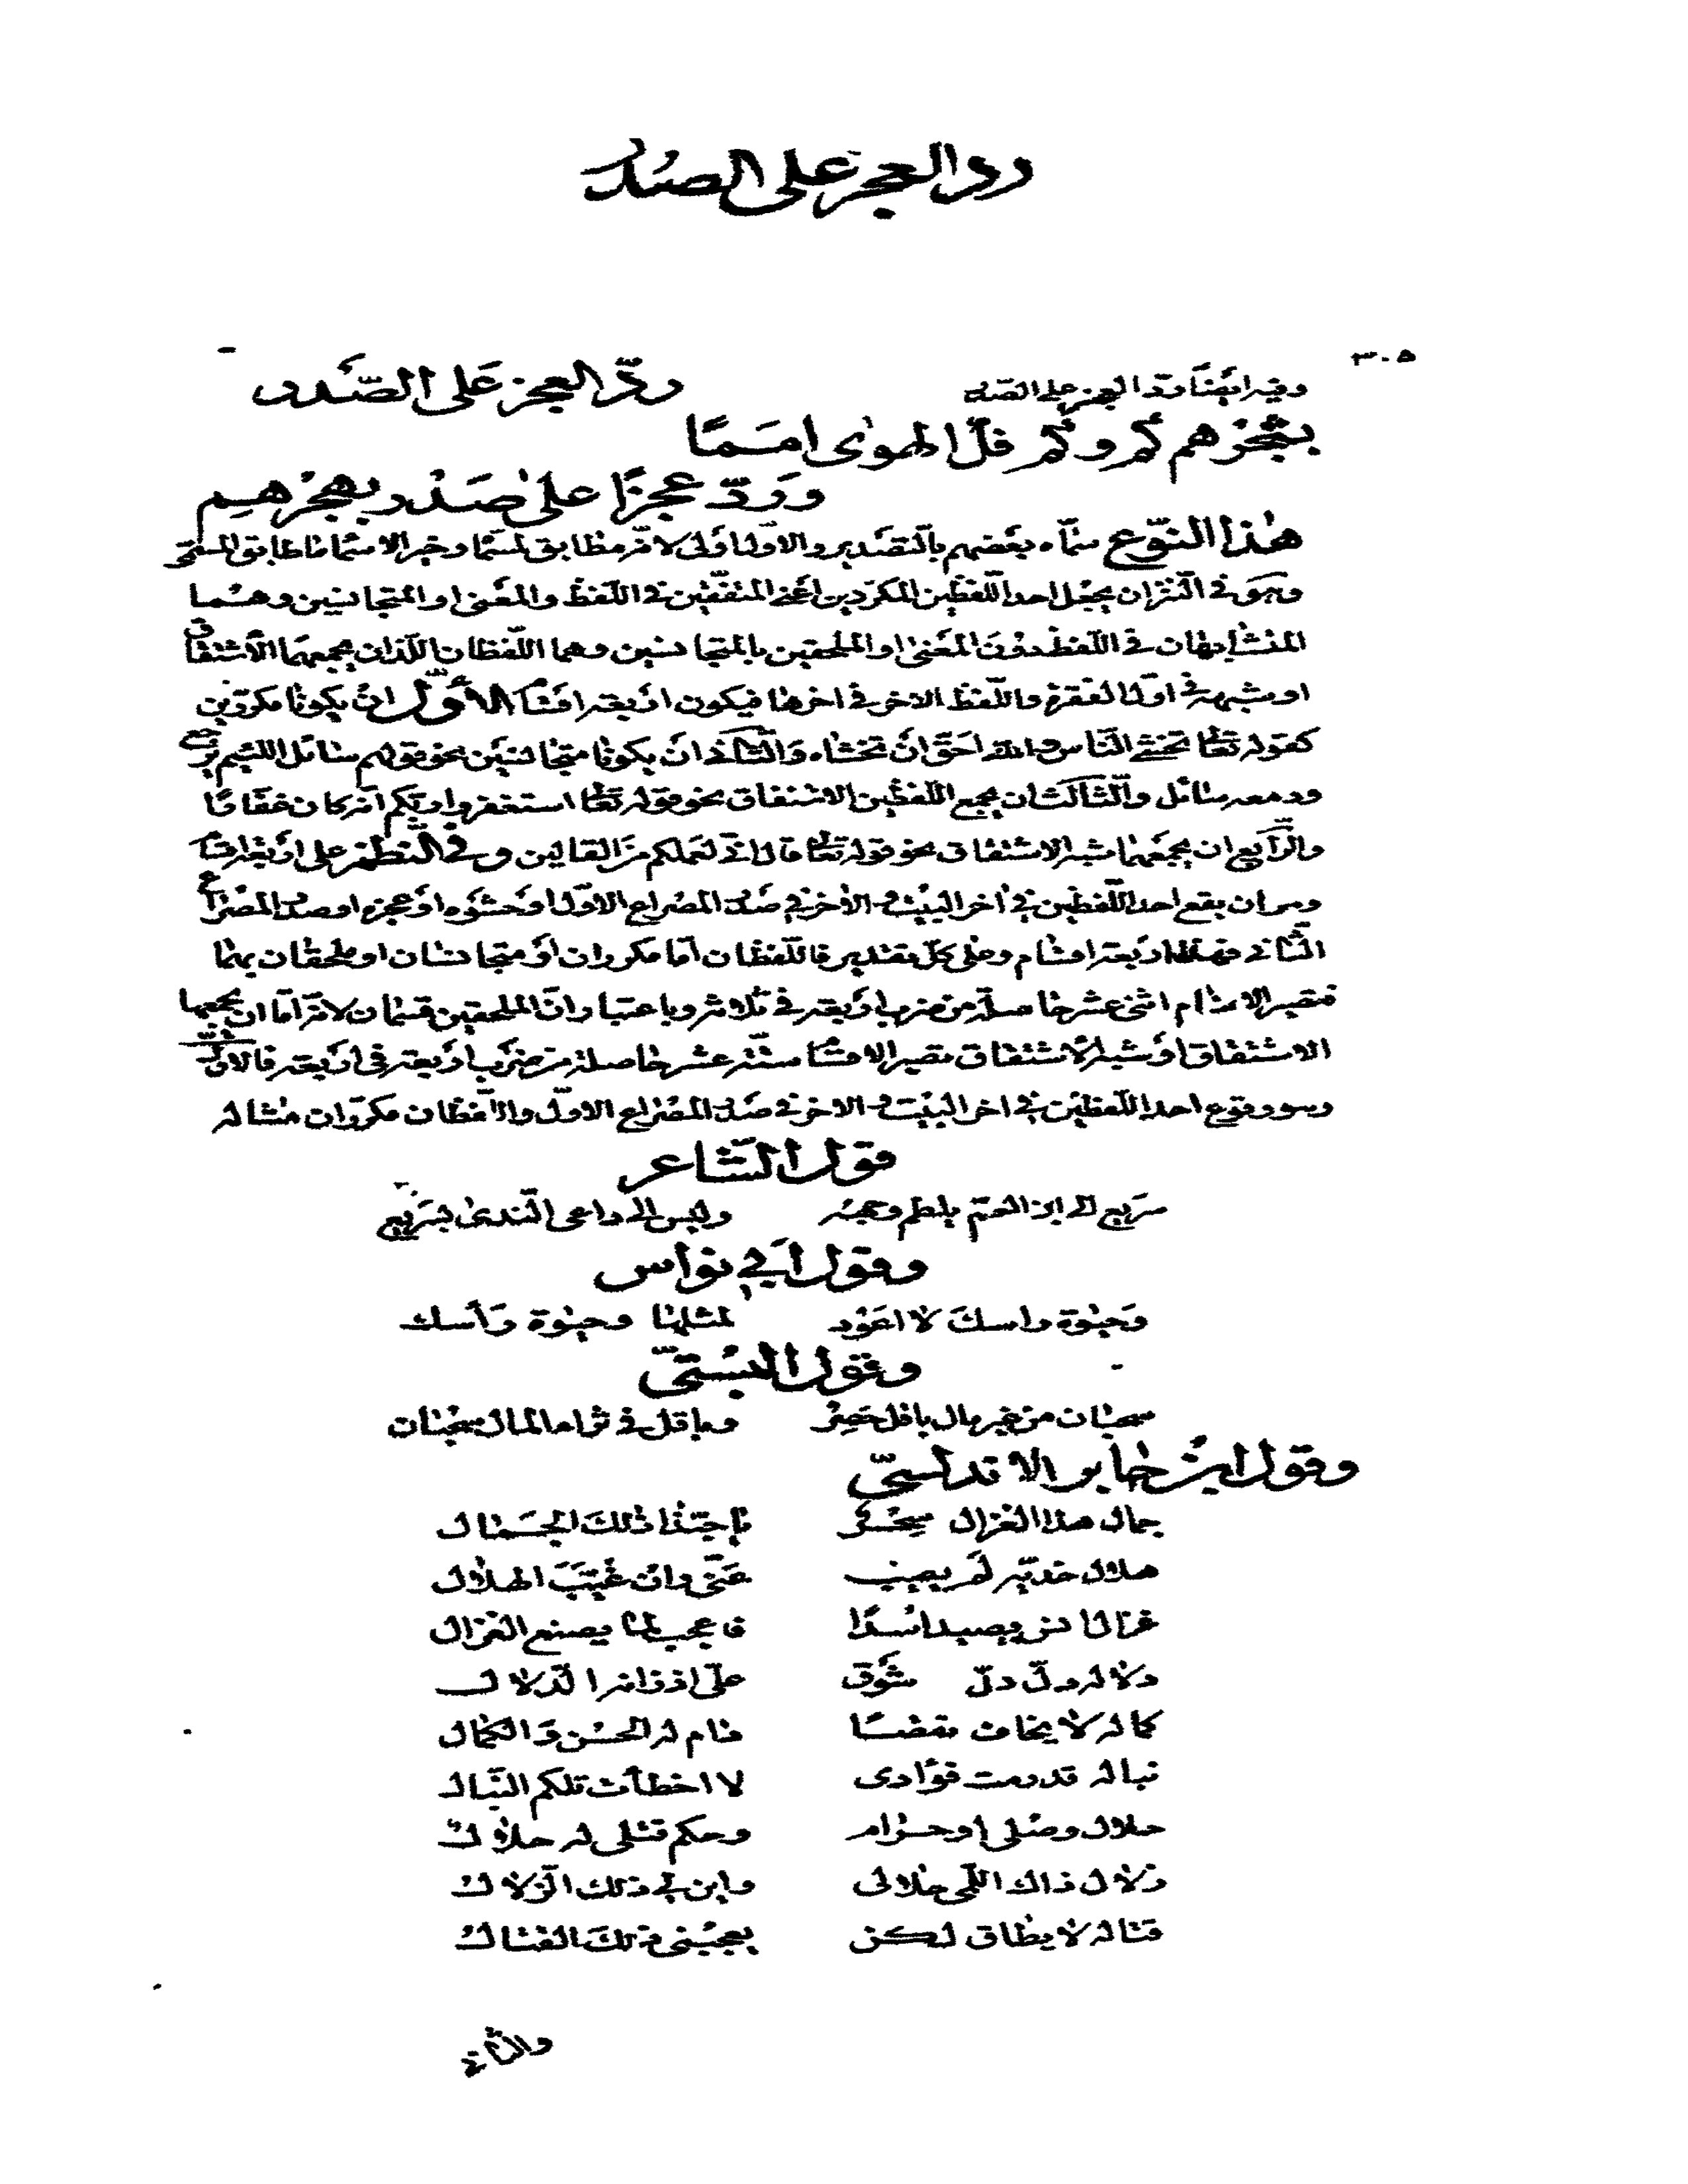 رد العجز على الصدر
٣٠٥
وفيه ايضا رد العجز على الصدر
ردّ العجز على الصّدر
بهجرهم كم وكم فلّ الهوى امما
وردّ عجزا على صدر بهجرهم
هذا النّوع سمّاه بعضهم بالتصدير والاول اولى لانه مطابق لمسماه وخير الاسماء ما طابق المسمى
وهو في النثر ان يجعل احد اللفظين المكررين اعني المتفقين في اللفظ والمعنى او المتجانسين وهما
المتشابهان في اللفظ دون المعنى او الملحقين بالمتجانسين وهما اللفظان اللذان يجمعهما الاشتقاق
او شبهه في اول الفقرة واللفظ الاخر في اخرها فيكون اربعة اقسام الأوّل ان يكونا مكررين
كقوله تعالى تخشى الناس والله احق ان تخشاه والثاني ان يكونا متجانسين نحو قولهم سائل اللئيم يرجع
ودمعه سائل والثالث ان يجمع اللفظين الاشتقاق نحو قوله تعالى استغفروا ربكم انه كان غفارا
والرابع ان يجمعهما شبه الاشتقاق نحو قوله تعالى قال اني لعملكم من القالين وفي النظم على اربعة اقسام
وهو ان يقع احد اللفظين في اخر البيت والاخر في صدر المصراع الاول او حشوه او عجزه او صدر المصراع
الثاني فهذه اربعة اقسام وعلى كل تقدير فاللفظان اما مكرران او متجانسان او ملحقان بهما
فتصير الاقسام اثنى عشر حاصلة من ضرب اربعة في ثلاثة وباعتبار ان الملحقين قسمان لانه اما ان يجمعهما
الاشتقاق او شبه الاشتقاق تصير الاقسام ستة عشر حاصلة من ضرب اربعة في اربعة فالاول
وهو وقوع احد اللفظين في اخر البيت والاخر في صدر المصراع الاول واللفظان مكرران مثاله
قول الشاعر
سريع الى ابن العم يلطم وجهه وليس الى داعى الندى بسريع
وقول أبي نواس
وحيوة راسك لا اعود لمثلها وحيوة رأسك
وقول البستيّ
سحبان من غير مال باقل حصر وباقل في ثراء المال سحبان
وقول ابن جابر الاندلسيّ
جمال هذا الغزال سحر يا حبّذا ذلك الجمال
هلال خديه لم يغيب عنّي وان غيّب الهلال
غزال انس يصيد اسدا فاعجب لما يصنع الغزال
دلاله دلّ دلّ شوق علىّ اذ زانه الدّلال
كماله لا يخاف نقصا دام له الحسن والكمال
نباله قد رمت فؤادى لا اخطأت تلكم النّبال
حلال وصلى او حرام وحكم قتلى له حلال
زلال ذاك اللّمى حلالى واين لي ذلك الزلال
قتاله لا يطاق لكن يعجبنى ذلك القتال
والثاني